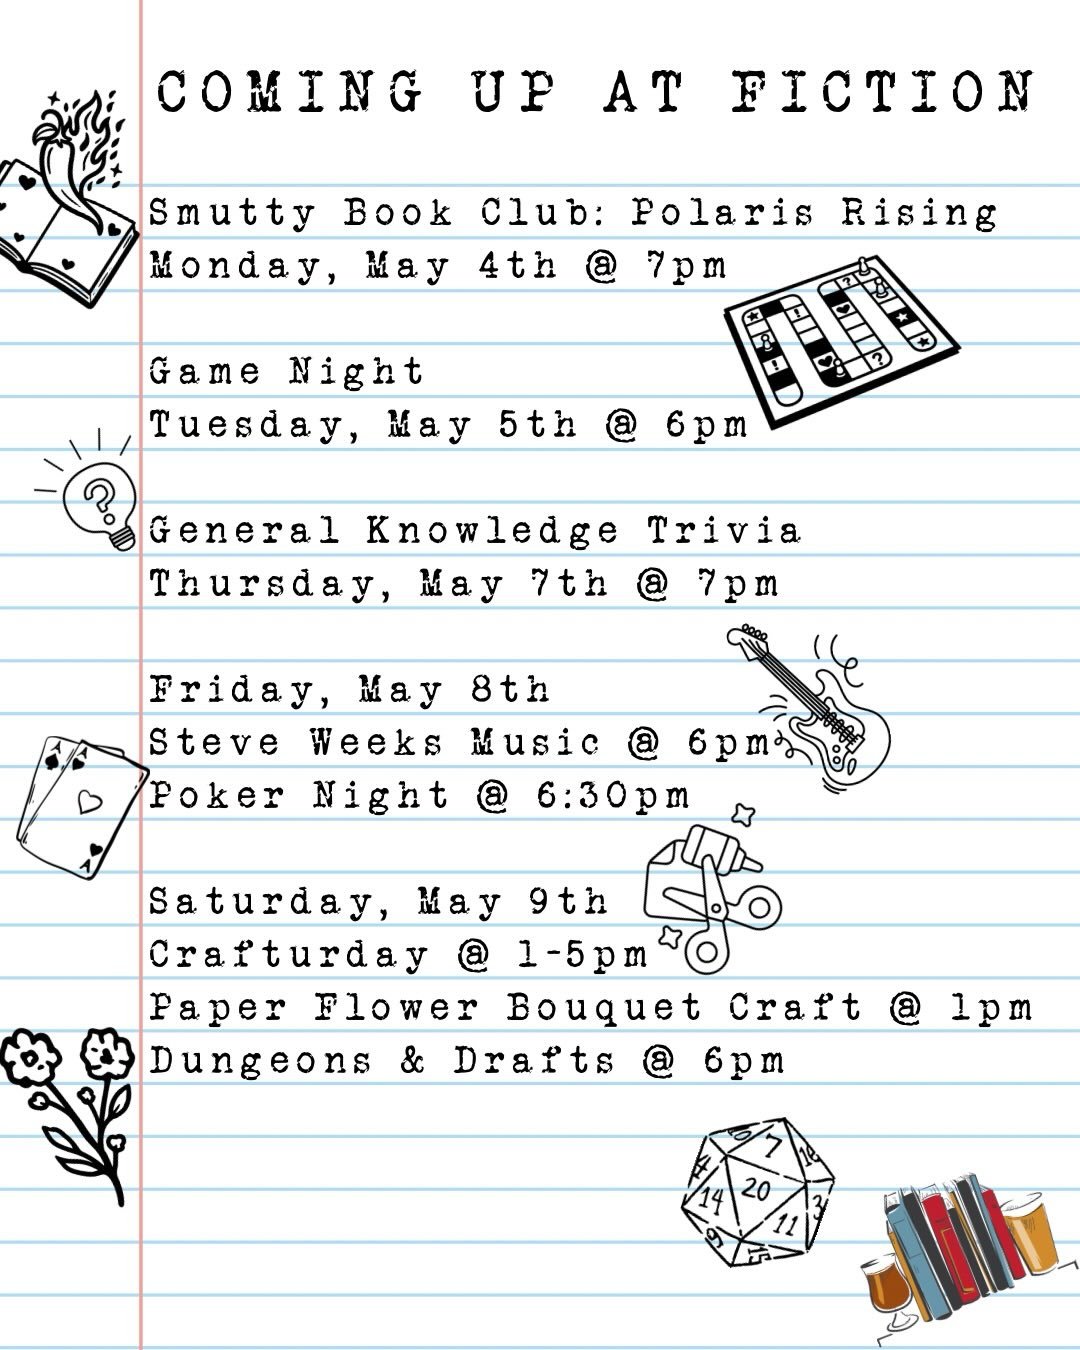 COMING UP AT FICTION
Smutty Book Club: Polaris Rising
Monday, May 4th @ 7pm
Game Night
Tuesday, May 5th @ 6pm
General Knowledge Trivia
Thursday, May 7th @ 7pm
Friday, May 8th
Steve Weeks Music @ 6pm
Poker Night @ 6:30pm
Saturday, May 9th
Crafturday @ 1-5pm
Paper Flower Bouquet Craft @ 1pm
Dungeons & Drafts @ 6pm
7
20
14
11